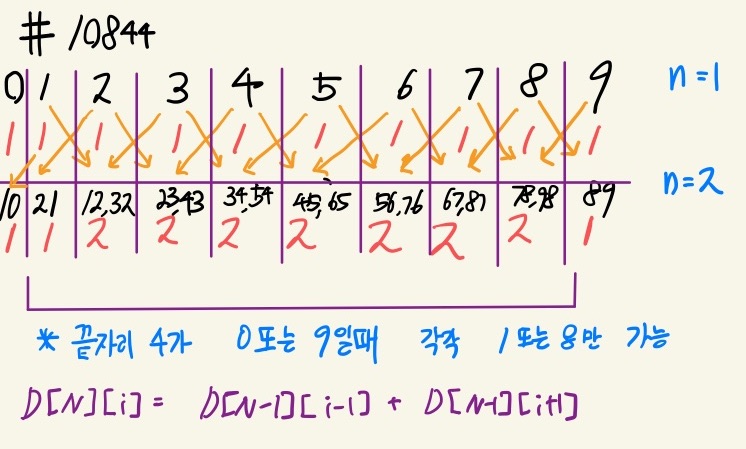 # 10844
0 1 2 3 4 5 6 7 8 9 n=1
1 1 1 1 1 1 1 1 1 1
10 21 12,32 23,43 34,54 45,65 56,76 67,87 78,98 89 n=2
1 1 2 2 2 2 2 2 2 1
* 끝자리 수가 0또는 9일때 각각 1또는 8만 가능
D[N][i] = D[N-1][i-1] + D[N-1][i+1]